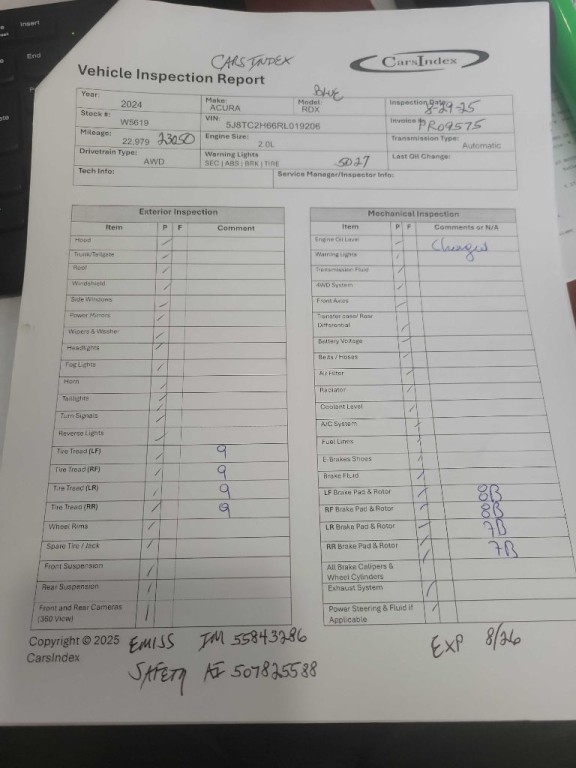 Insert
End
CARS INDEX
CarsIndex
Vehicle Inspection Report
BLUE
Year: 2024 Make: ACURA Model: RDX Inspection Date: 8-29-25
Stock #: W5619 VIN: 5J8TC2H66RL019206 Invoice #: PR09575
Mileage: 22,979 23050 Engine Size: 2.0L Transmission Type: Automatic
Drivetrain Type: AWD Warning Lights SEC | ABS | BRK | TIRE 5027 Last Oil Change:
Tech Info: Service Manager/Inspector Info:
Exterior Inspection
Item P F Comment
Hood
Trunk/Tailgate
Roof
Windshield
Side Windows
Power Mirrors
Wipers & Washer
Headlights
Fog Lights
Horn
Taillights
Turn Signals
Reverse Lights
Tire Tread (LF) 9
Tire Tread (RF) 9
Tire Tread (LR) 9
Tire Tread (RR) 9
Wheel Rims
Spare Tire / Jack
Front Suspension
Rear Suspension
Front and Rear Cameras
(360 View)
Mechanical Inspection
Item P F Comments or N/A
Engine Oil Level Changed
Warning Lights
Transmission Fluid
4WD System
Front Axles
Transfer case/ Rear
Differential
Battery Voltage
Belts / Hoses
Air Filter
Radiator
Coolant Level
A/C System
Fuel Lines
E-Brakes Shoes
Brake Fluid
LF Brake Pad & Rotor 8B
RF Brake Pad & Rotor 8B
LR Brake Pad & Rotor 7B
RR Brake Pad & Rotor 7B
All Brake Calipers &
Wheel Cylinders
Exhaust System
Power Steering & Fluid if
Applicable
Copyright © 2025
CarsIndex
EMISS IM 55843286
SAFETY AI 507825588
EXP 8/26